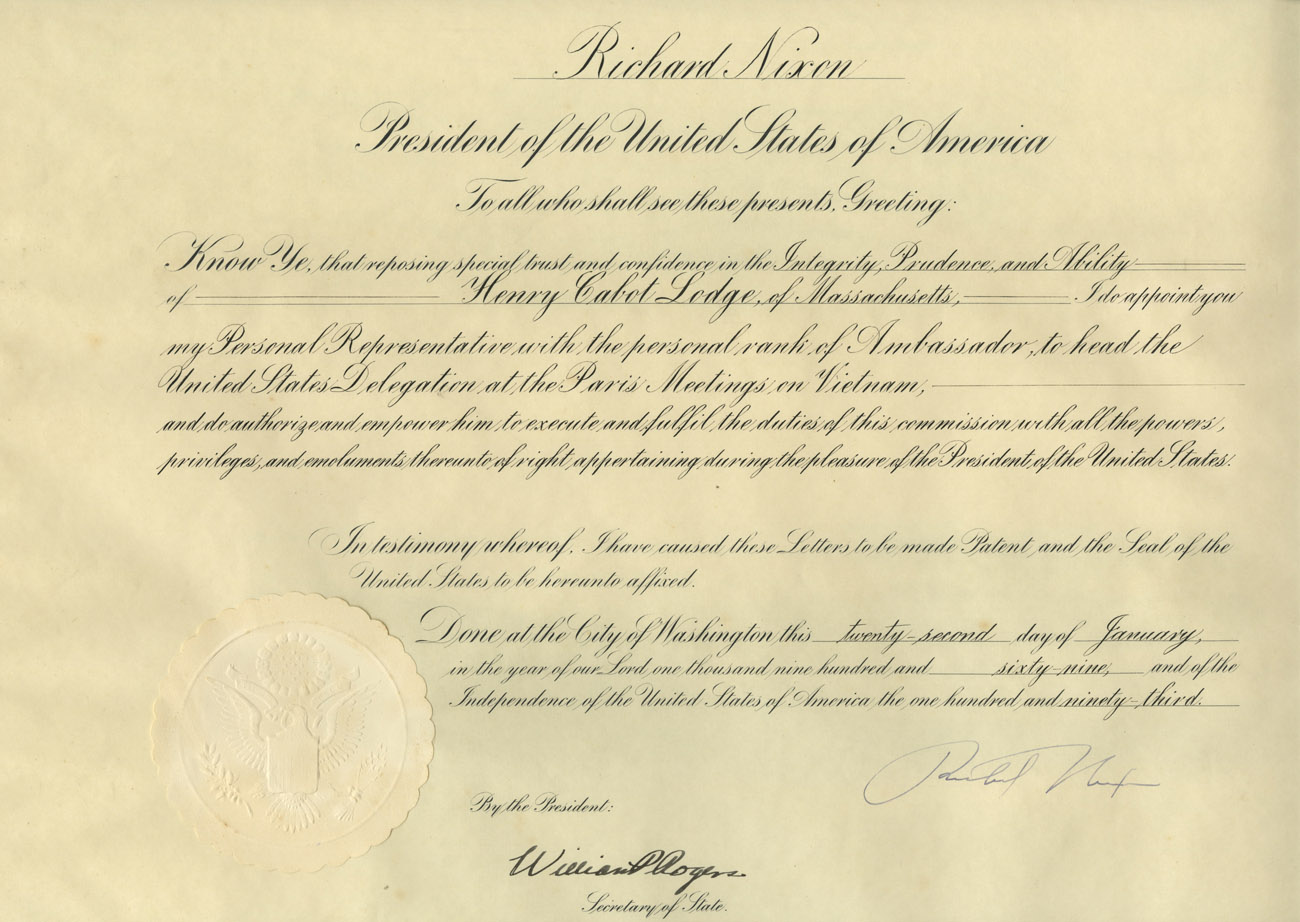 Richard Nixon
President of the United States of America
To all who shall see these presents, Greeting:
Know Ye, that reposing special trust and confidence in the Integrity, Prudence, and Ability
of Henry Cabot Lodge, of Massachusetts, I do appoint you
my Personal Representative with the personal rank of Ambassador, to head the
United States Delegation at the Paris Meetings on Vietnam,
and do authorize and empower him to execute and fulfil the duties of this commission with all the powers,
privileges, and emoluments thereunto of right appertaining during the pleasure of the President of the United States.
In testimony whereof, I have caused these Letters to be made Patent and the Seal of the
United States to be hereunto affixed.
Done at the City of Washington this twenty-second day of January,
in the year of our Lord one thousand nine hundred and sixty-nine, and of the
Independence of the United States of America the one hundred and ninety-third.
Richard Nixon
By the President:
William P Rogers
Secretary of State.